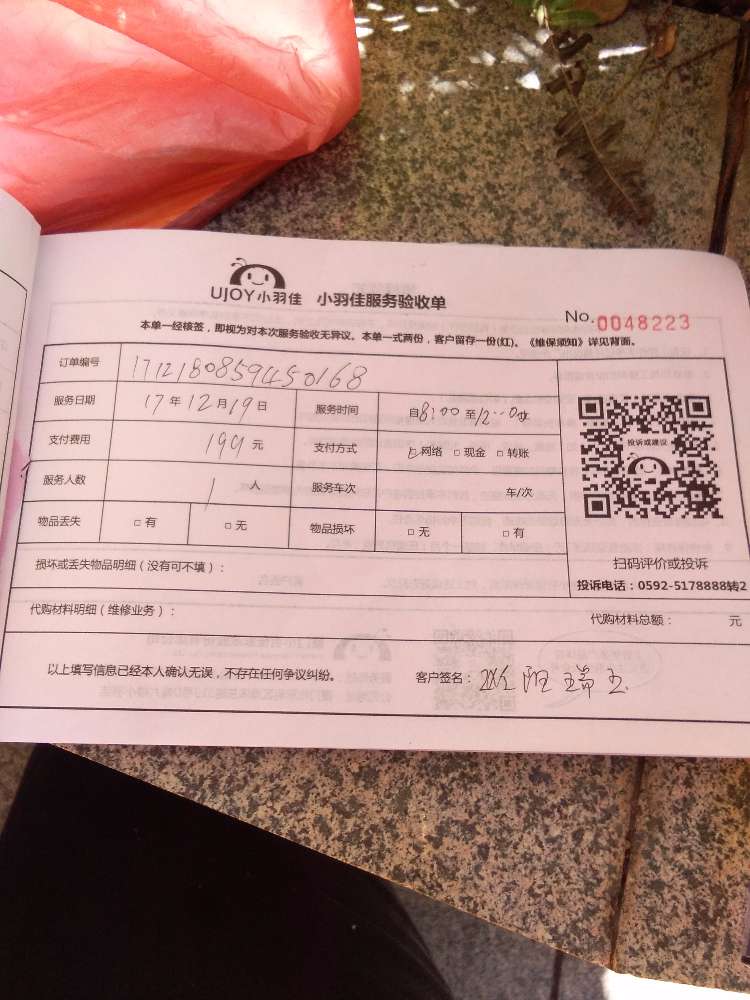 UJOY小羽佳 小羽佳服务验收单
No.0048223
本单一经核签，即视为对本次服务验收无异议。本单一式两份，客户留存一份(红)。《维保须知》详见背面。
订单编号 171218085945016​8
服务日期 17年12月19日 服务时间 自8:00至12:00
投诉或建议
支付费用 199元 支付方式 网络 □现金 □转账
服务人数 1人 服务车次 车/次
物品丢失 □有 □无 物品损坏 □无 □有
扫码评价或投诉
损坏或丢失物品明细（没有可不填）：
投诉电话：0592-5178888转2
代购材料明细（维修业务）：
代购材料总额： 元
以上填写信息已经本人确认无误，不存在任何争议纠纷。 客户签名：